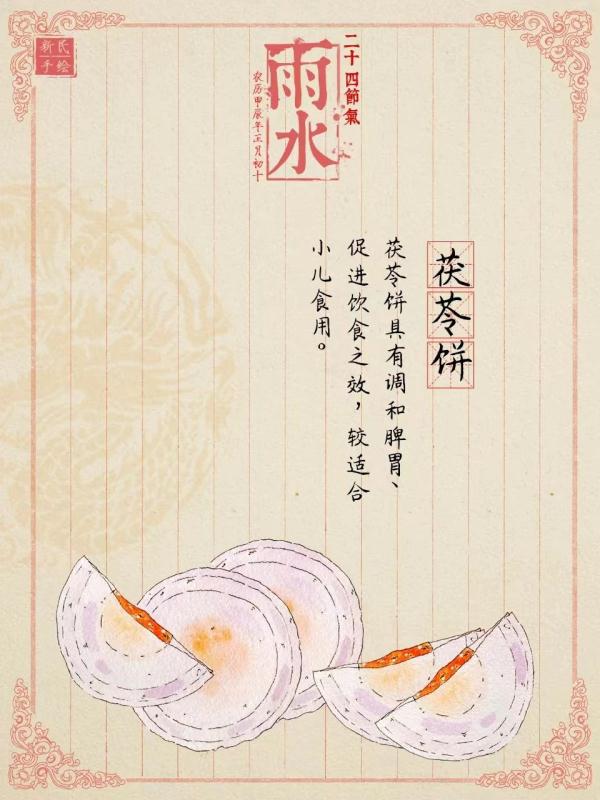 新氏
手绘
二十四節氣
雨水
农历甲辰年正月初十
茯苓饼
茯苓饼具有调和脾胃、
促进饮食之效，较适合
小儿食用。